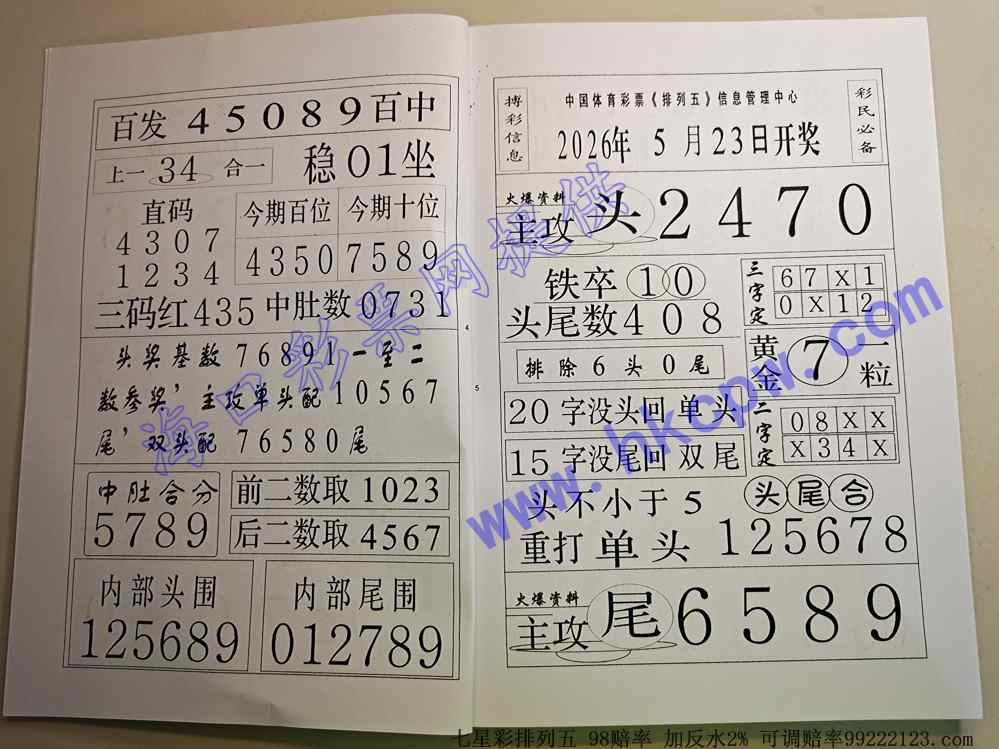 百发 45089 百中
上一 34 合一
稳 01 坐
直码
4307
1234
今期百位
4350
今期十位
7589
三码红 435 中肚数 0731
头奖基数 76891 一至二
数参奖，主攻单头配 10567
尾，双头配 76580 尾
中肚合分
5789
前二数取 1023
后二数取 4567
内部头围
125689
内部尾围
012789
4
5
搏彩信息
中国体育彩票《排列五》信息管理中心
2026年 5 月 23日开奖
彩民必备
火爆资料
主攻 头 2470
铁卒 10
头尾数 408
排除 6 头 0 尾
三字定
6 7 X 1
0 X 1 2
黄金 7 一粒
20 字没头回 单 头
15 字没尾回 双 尾
二字定
0 8 X X
X 3 4 X
头 不 小 于 5
头 尾 合
重打 单 头 125678
火爆资料
主攻 尾 6589
海口彩票网提供
www.hkcpw.com
七星彩排列五 98赔率 加反水2% 可调赔率99222123.com